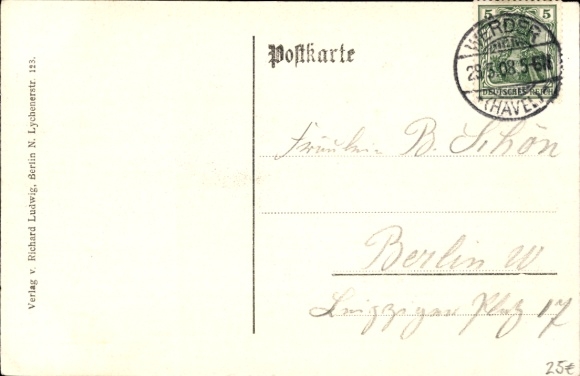 Verlag v. Richard Ludwig, Berlin N. Lychenerstr. 123.
Postkarte
5 5
DEUTSCHES REICH
WERDER
29.3.08.5-6N
*(HAVEL)*
Fräulein B. Schön
Berlin W
Leipziger Platz 17
25€